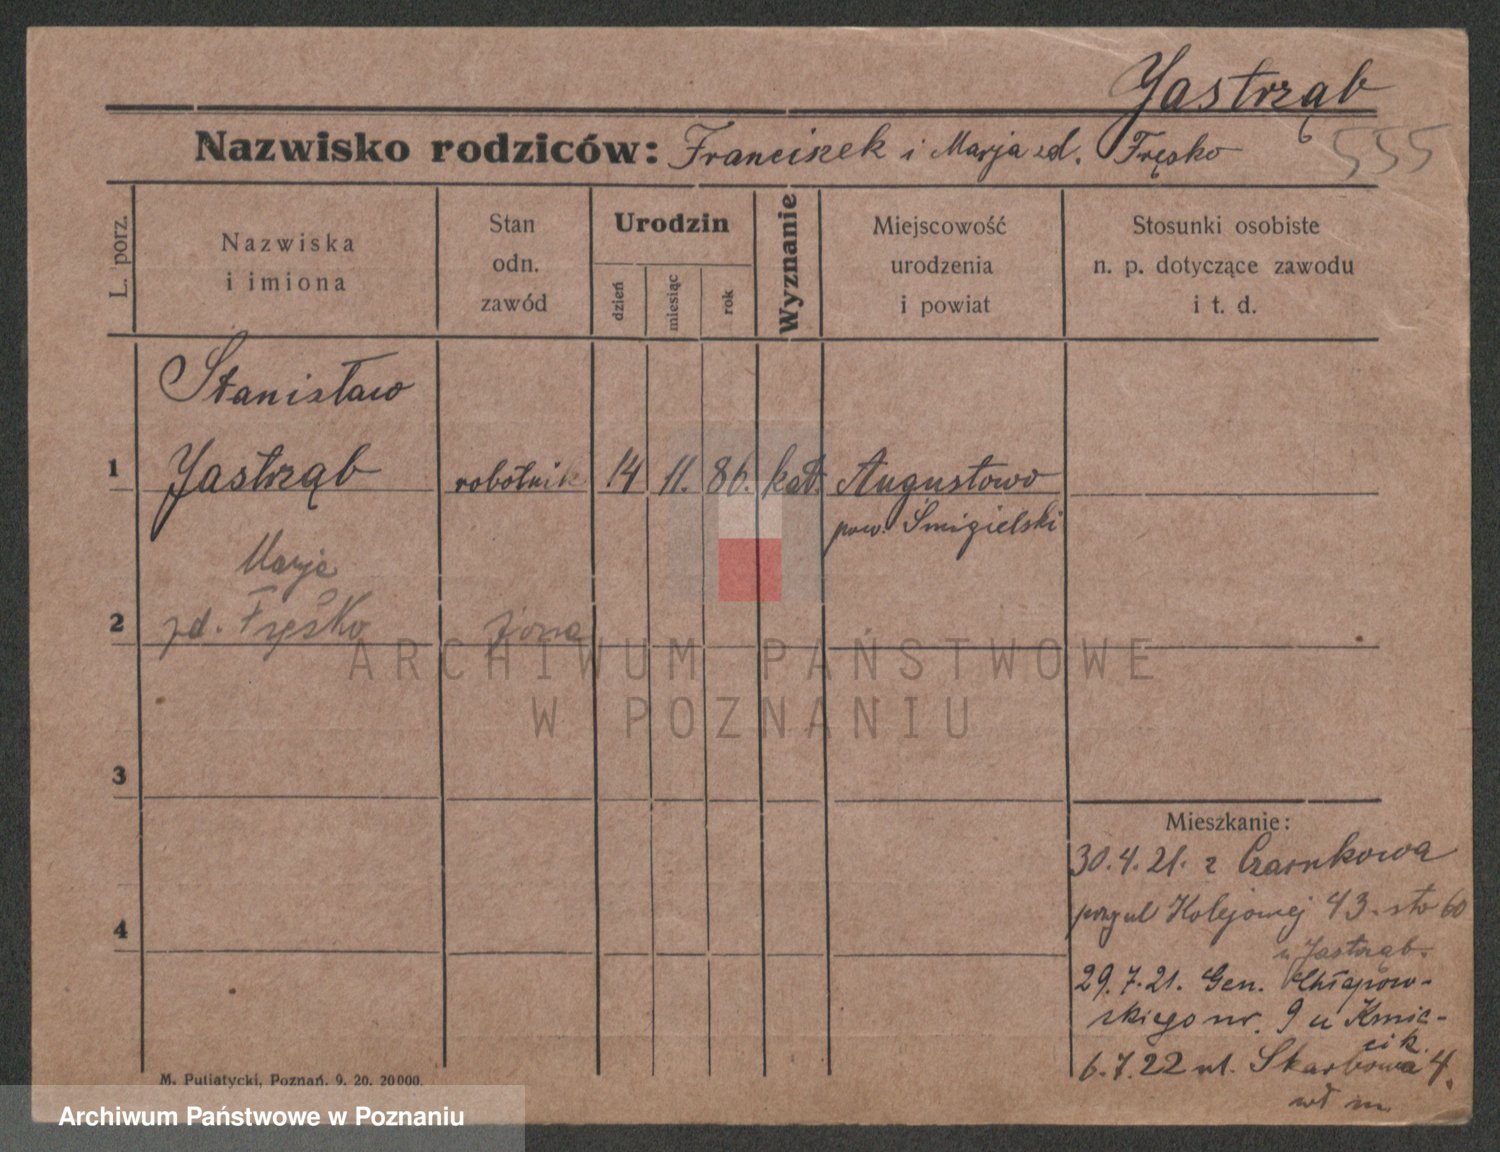 Jastrząb
Nazwisko rodziców: Franciszek i Marja zd. Fręsko
555
L. porz.
Nazwiska
i imiona
Stan
odn.
zawód
Urodzin
dzień
miesiąc
rok
Wyznanie
Miejscowość
urodzenia
i powiat
Stosunki osobiste
n. p. dotyczące zawodu
i t. d.
Stanisław
1 Jastrząb robotnik 14 11. 86. kat. Augustowo
pow. Śmigielski
Marja
2 zd. Fręśko żona
3
4
Mieszkanie:
30.4.21. z Czarnkowa
przy ul Kolejowej 43. sto 60
u Jastrząb.
29.7.21. Gen. Chłapow-
skiego nr. 9 u Kmie-
cik.
6.7.22 ul. Skarbowa 4.
wł m
M. Putiatycki, Poznań. 9. 20. 20000.
ARCHIWUM PAŃSTWOWE
W POZNANIU
Archiwum Państwowe w Poznaniu